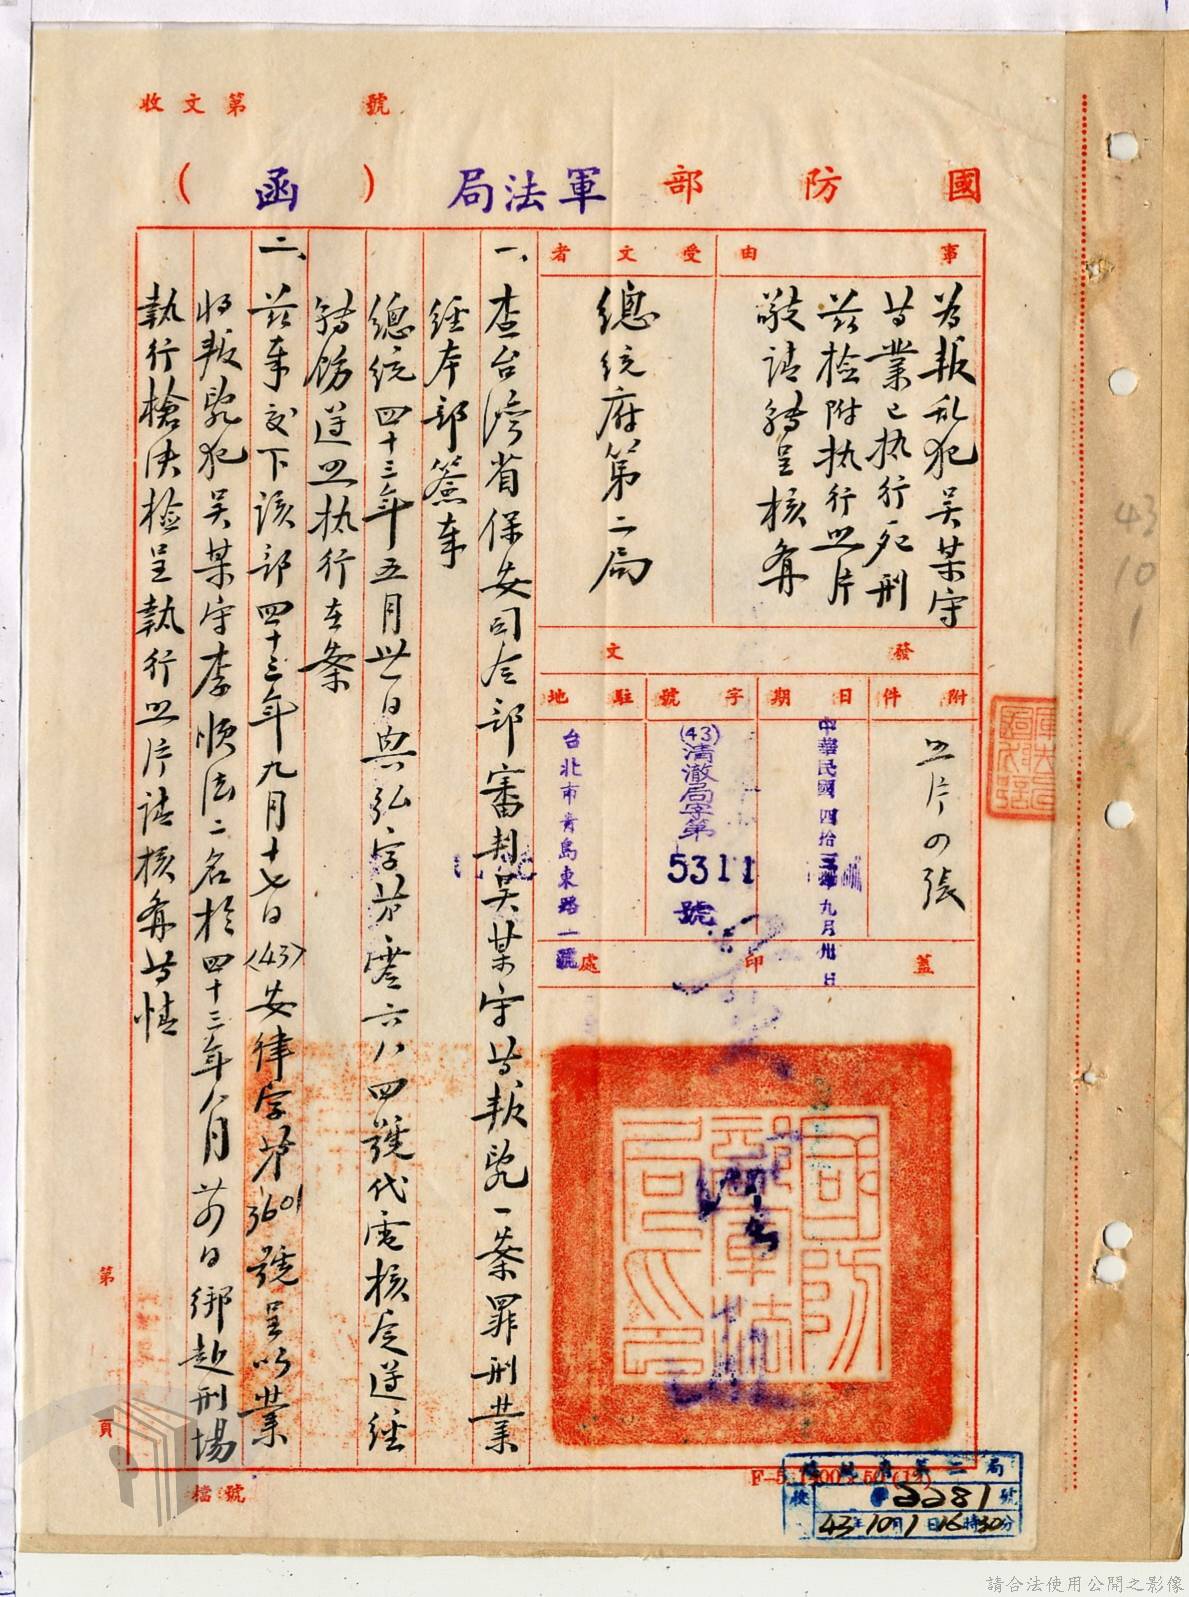 收文第 號
國防部軍法局（函）
事由
為叛乱犯吴某守
等業已执行死刑
茲检附执行照片
敬請轉呈核备
受文者
總統府第二局
發文
附件
照片の張
日期
中華民國四拾三年九月卅日
字號
(43)清澈局字第
5311
號
駐地
台北市青島東路一號
蓋印處
國防部軍法局印
一、查台湾省保安司令部審判吴某守等叛乱一案罪刑業
經本部簽奉
總統四十三年五月卅一日興弘字第零六八四號代電核定遵經
轉飭遵照执行在案
二、茲奉交下該部四十三年九月十七日(43)安律字第3601號呈以業
將叛乱犯吴某守李順法二名於四十三年八月 日绑赴刑場
執行槍决检呈執行照片請核备等情
第 頁
檔號
總統府第二局
收 2281號
43年10月1日16時30分
43
10
1
請合法使用公開之影像